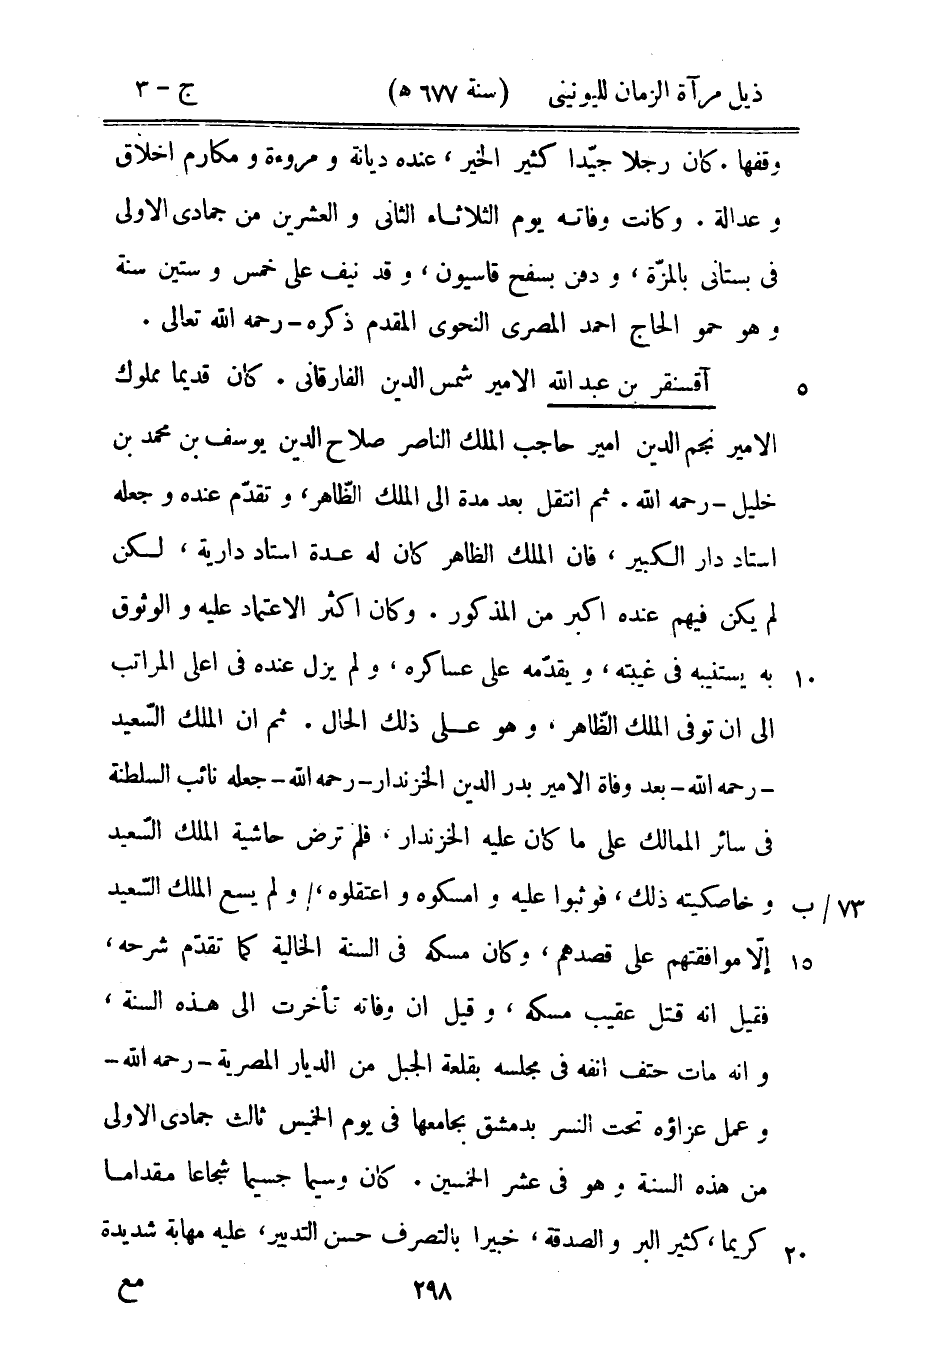 ذيل مرآة الزمان لليونينى (سنة ٦٧٧ ھ) ج – ٣
وقفها . كان رجلا جيّدا كثير الخير ، عنده ديانة و مروءة و مكارم اخلاق
و عدالة . وكانت وفاته يوم الثلاثاء الثانى و العشرين من جمادى الاولى
فى بستانى بالمزّة ، و دفن بسفح قاسيون ، و قد نيف على خمس و ستين سنة
و هو حمو الحاج احمد المصرى النحوى المقدم ذكره – رحمه الله تعالى .
آقسنقر بن عبد الله الامير شمس الدين الفارقانى . كان قديما مملوك ٥
الامير نجم الدين امير حاجب الملك الناصر صلاح الدين يوسف بن محمد بن
خليل – رحمه الله . ثم انتقل بعد مدة الى الملك الظّاهر، و تقدّم عنده و جعله
استاد دار الكبير ، فان الملك الظاهر كان له عدة استاد دارية ، لكن
لم يكن فيهم عنده اكبر من المذكور . وكان اكثر الاعتماد عليه و الوثوق
به يستنيبه فى غيبته ، و يقدّمه على عساكره ، و لم يزل عنده فى اعلى المراتب ١٠
الى ان توفى الملك الظّاهر ، و هو على ذلك الحال . ثم ان الملك السّعيد
– رحمه الله – بعد وفاة الامير بدر الدين الخزندار – رحمه الله – جعله نائب السلطنة
فى سائر الممالك على ما كان عليه الخزندار ، فلم ترض حاشية الملك السّعيد
و خاصكيته ذلك ، فوثبوا عليه و امسكوه و اعتقلوه ،/ و لم يسع الملك السّعيد ٧٣/ ب
إلّا موافقتهم على قصدهم ، وكان مسكه فى السنة الخالية كما تقدّم شرحه ، ١٥
فقيل انه قتل عقيب مسكه ، و قيل ان وفاته تأخرت الى هذه السنة ،
و انه مات حتف انفه فى مجلسه بقلعة الجبل من الديار المصرية – رحمه الله –
و عمل عزاؤه تحت النسر بدمشق بجامعها فى يوم الخميس ثالث جمادى الاولى
من هذه السنة و هو فى عشر الخمسين . كان وسيما جسيما شجاعا مقداما
كريما ، كثير البر و الصدقة ، خبيرا بالتصرف حسن التدبير، عليه مهابة شديدة ٢٠
٢٩٨ مع